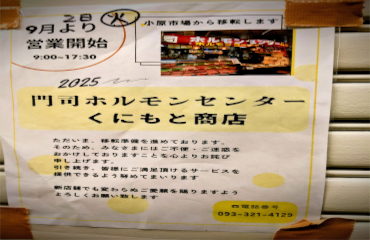 9月2日より(火)
営業開始
9:00~17:30
小原市場から移転します
門司ホルモン
2025
門司ホルモンセンター
くにもと商店
ただいま、移転準備を進めております。
そのため、みなさまにはご不便・ご迷惑を
おかけしておりますことを心よりお詫び
申し上げます。
引き続き、皆様にご満足頂けるサービスを
提供できるよう努めてまいります
新店舗でも変わらぬご愛顧を賜りますよう
よろしくお願い致します
電話番号
093-321-4129